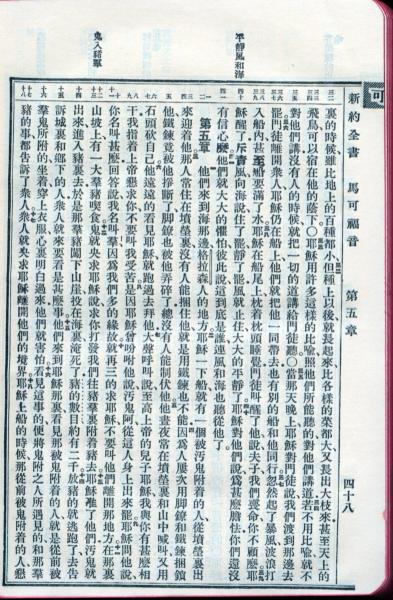 可
新約全書 馬可福音 第五章 四十八
平靜風和海
鬼入豬羣
裏的時候雖比地上的百種都小但種上以後就長起來比各樣的菜都大又長出大枝來甚至天上的
飛鳥可以宿在他的蔭下○耶穌用許多這樣的比喻照他們所能聽的對他們講道若不用比喻就不
對他們講沒有人的時候就把一切的道講給門徒聽○當那天晚上耶穌對門徒說我們渡到那邊去
罷門徒離開衆人耶穌仍在船上他們就把他一同帶去也有別的船和他同行忽然起了暴風波浪打
入船內甚至船要滿了水耶穌在船尾上枕着枕頭睡覺門徒叫醒了他說夫子我們喪命你不顧麼耶
穌醒了斥責風向海說住了罷靜了罷風就止住大大的平靜了耶穌對他們說爲甚麼膽怯你們還沒
有信心麼他們就大大的懼怕彼此說這到底是誰連風和海也聽從他了
第五章 他們來到海那邊格拉森人的地方耶穌一下船就有一個被汚鬼附着的人從墳塋裏出
來迎着他那人常住在墳塋裏沒有人能捆住他就是用鐵鍊也不能因爲人屢次用脚鐐和鐵鍊捆鎖
他鐵鍊竟被他掙斷了脚鐐也被他弄碎了總沒有人能制伏他他晝夜常在墳塋裏和山中喊叫又用
石頭砍自己他遠遠的看見耶穌就跑過去拜他大聲呼叫說至高上帝的兒子耶穌我與你有甚麼相
干我指着上帝懇求你不要叫我受苦是因耶穌曾吩咐他說汚鬼阿從這人身上出來罷耶穌問他說
你名叫甚麼回答說我名叫羣因爲我們多的緣故就再三的求耶穌不要叫他們離開那地方在那裏
山坡上有一大羣豬喫食鬼就央求耶穌說求你打發我們往豬羣裏附着豬去耶穌准了他們汚鬼就
出來進入豬裏去於是那羣豬闖下山崖投在海裏淹死了豬的數目約有二千放豬的就逃跑了去告
訴城裏和鄉下的人衆人就來要看是甚麼事他們來到耶穌那裏看見那被鬼附着的人就是從前被
羣鬼所附的坐着穿上衣服心裏明白過來他們就害怕看見這事的便將鬼附之人所遇見的和那羣
豬的事都告訴了衆人衆人就央求耶穌離開他們的境界耶穌上船的時候那從前被鬼附着的人懇